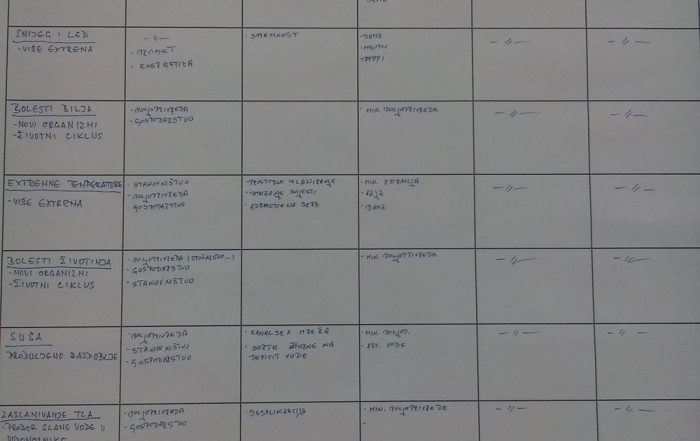 SNIJEG I LED
- VIŠE EXTREMA
- " -
- PROMET
- ENERGETIKA
- STRMNOST
- DHMZ
- " -
- " -
BOLESTI BILJA
- NOVI ORGANIZMI
- ŽIVOTNI CIKLUS
- POLJOPRIVREDA
- GOSPODARSTVO
- MIN. POLJOPRIVREDE
- " -
- " -
EXTREMNE TEMPERATURE
- VIŠE EXTREMA
- STANOVNIŠTVO
- POLJOPRIVREDA
- GOSPODARSTVO
- PROSTORNO PLANIRANJE
- MIN. ZDRAVLJA
- DHMZ
- " -
- " -
BOLESTI ŽIVOTINJA
- NOVI ORGANIZMI
- ŽIVOTNI CIKLUS
- POLJOPRIVREDA (STOČARSTVO..)
- GOSPODARSTVO
- STANOVNIŠTVO
- MIN. POLJOPRIVREDE
- " -
- " -
SUŠA
PRODULJENO RAZDOBLJE
- POLJOPRIVREDA
- STANOVNIŠTVO
- GOSPODARSTVO
- KANALSKA MREŽA
- SORTE OTPORNE NA
DEFICIT VODE
- MIN. POLJOP.
- HRV. VODE
- " -
- " -
ZASLANJIVANJE TLA
- PRODOR SLANE VODE U
- POLJOPRIVREDA
- GOSPODARSTVO
- DESALINIZACIJA
- MIN. POLJOPRIVREDE
-
- " -
- " -